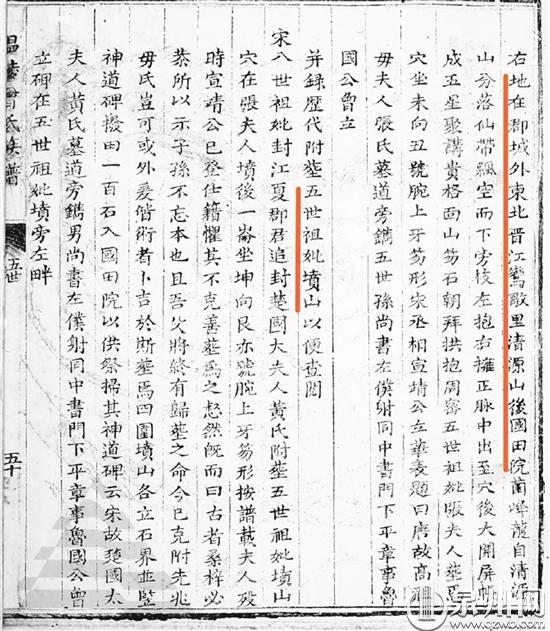 右地在郡城外東北晋江鸞歌里清源山後國田院蘭峰龍自清源
山分落仙帶飄空而下旁枝左抱右擁正脉中出至穴後大開屏帳
成五星聚講貴格面山笏石朝拜拱抱周密五世祖妣張夫人塟焉
穴坐未向丑號腕上牙笏形宋丞相宣靖公立華表題曰唐故高祖
毋夫人張氏墓道旁鐫五世孫尚書左僕射同中書門下平章事魯
國公魯立
并録歷代附塟五世祖妣墳山以便查閲
宋八世祖妣封江夏郡君追封楚國大夫人黃氏附塟五世祖妣墳山
穴在張夫人墳後一崙坐坤向艮亦號腕上牙笏形按譜載夫人歿
時宣靖公已登仕籍懼其不克善塟爲之愁然旣而曰古者桑梓必
恭所以示子孫不忘本也且吾父將終有歸塟之命今已克附先兆
毋氏豈可或外爰偕術者卜吉於斯塟焉四圍墳山各立石界並監
神道碑撥田一百石入國田院以供祭掃其神道碑云宋故楚國太
夫人黃氏墓道旁鐫男尚書左僕射同中書門下平章事魯國公曾
立碑在五世祖妣墳旁左畔
温陵曾氏族譜
五世
五十
泉州网
www.qzwb.com